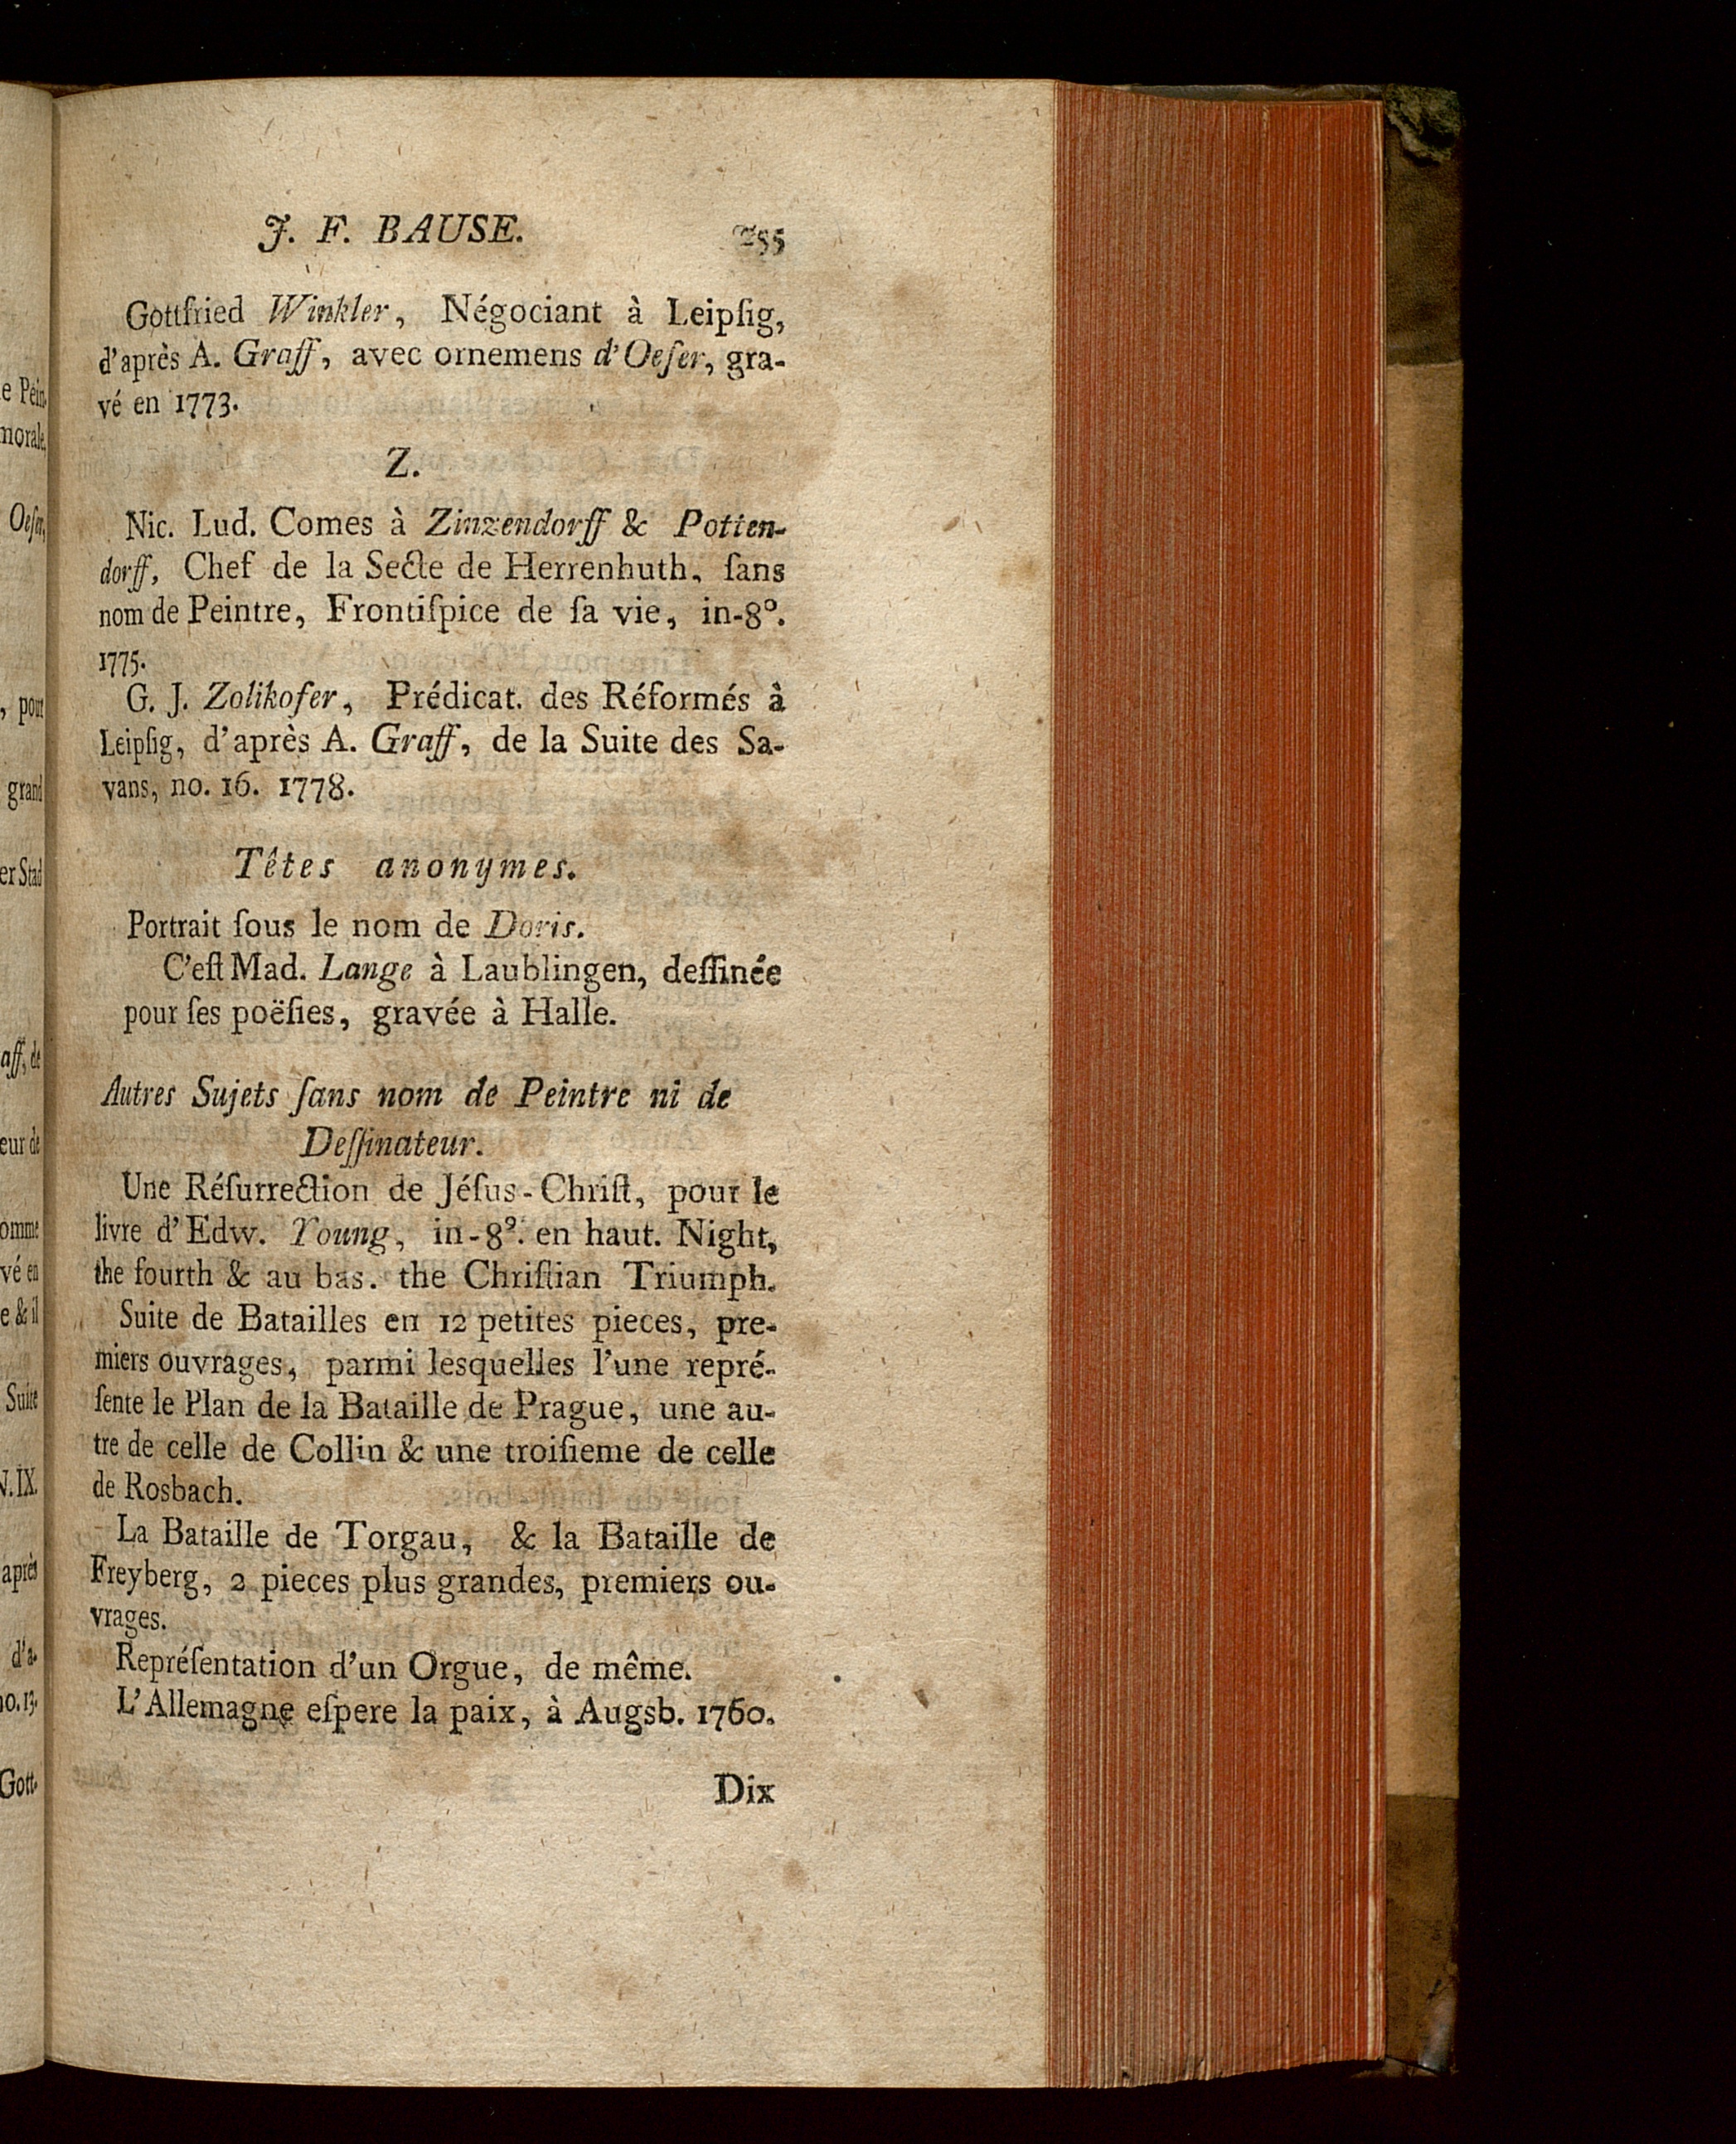 J. F. BAUSE. 255
Gottfried Winkler, Négociant à Leipſig,
d'après A. Graff, avec ornemens d'Oeſer, gra-
vé en 1773.
Z.
Nic. Lud. Comes à Zinzendorff & Potten-
dorff, Chef de la Secte de Herrenhuth, ſans
nom de Peintre, Frontiſpice de ſa vie, in-8°.
1775.
G. J. Zolikofer, Prédicat. des Réformés à
Leipſig, d'après A. Graff, de la Suite des Sa-
vans, no. 16. 1778.
Têtes anonymes.
Portrait ſous le nom de Doris.
C'eſt Mad. Lange à Laublingen, deſſinée
pour ſes poëſies, gravée à Halle.
Autres Sujets ſans nom de Peintre ni de
Deſſinateur.
Une Réſurrection de Jéſus-Chriſt, pour le
livre d'Edw. Young, in-8°. en haut. Night,
the fourth & au bas. the Chriſtian Triumph.
Suite de Batailles en 12 petites pieces, pre-
miers ouvrages, parmi lesquelles l'une repré-
ſente le Plan de la Bataille de Prague, une au-
tre de celle de Collin & une troiſieme de celle
de Rosbach.
La Bataille de Torgau, & la Bataille de
Freyberg, 2 pieces plus grandes, premiers ou-
vrages.
Repréſentation d'un Orgue, de même.
L'Allemagne eſpere la paix, à Augsb. 1760.
Dix